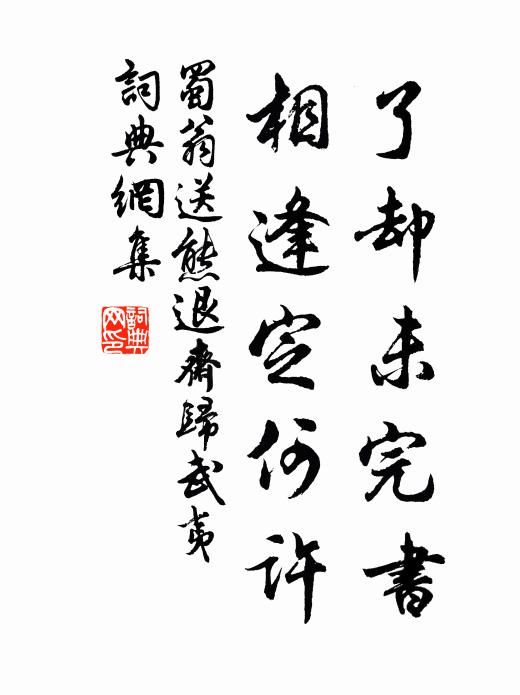 了却未完書
相逢定何許
蜀翁送熊退齋歸武夷
詞典網集
詞典网印